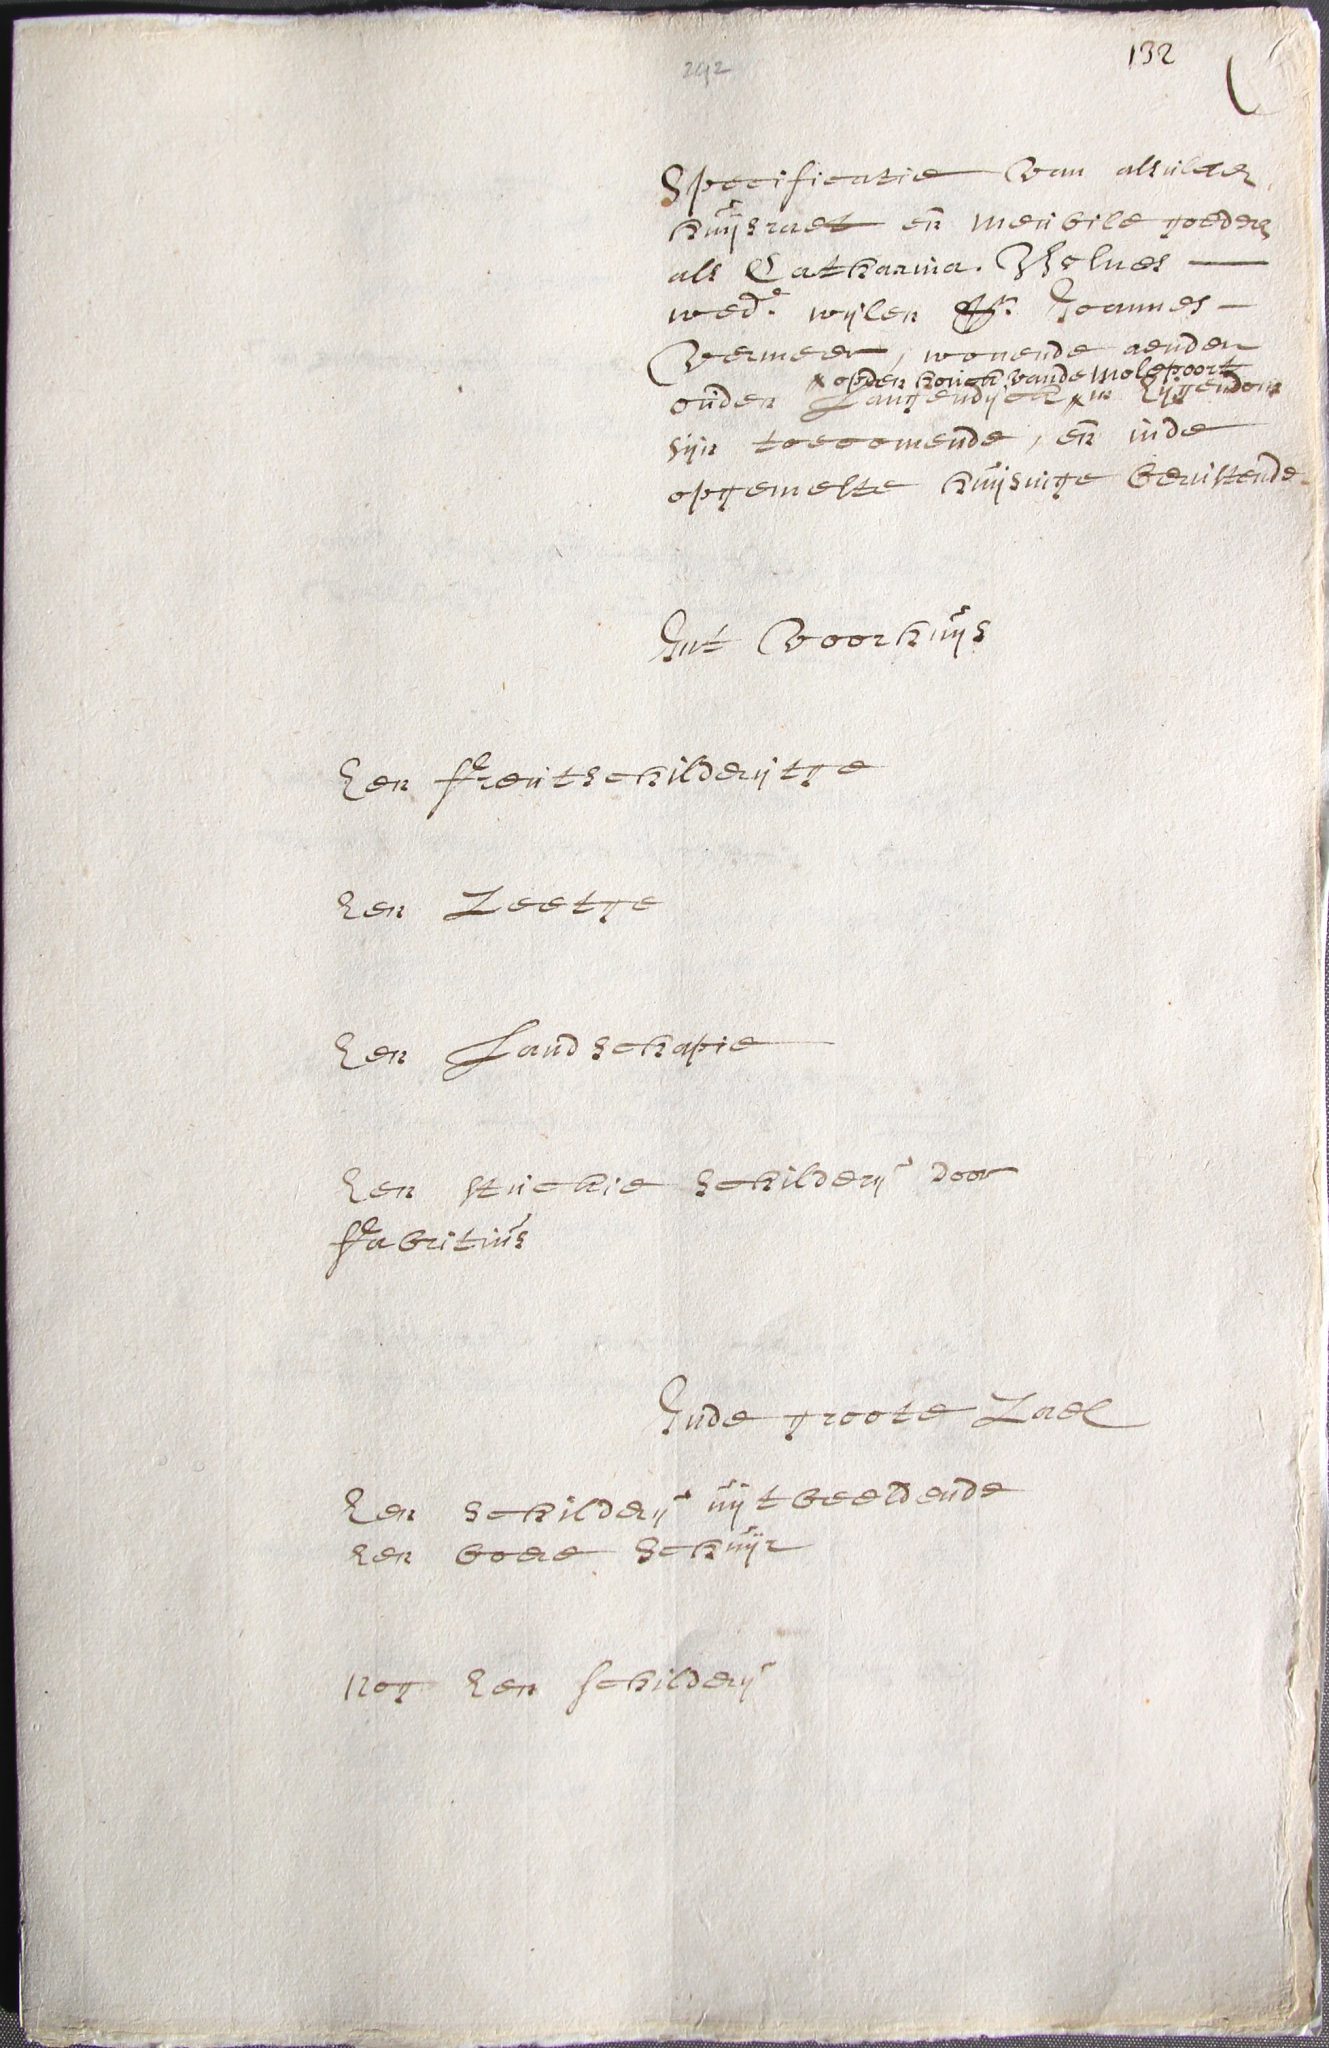 292
132
Specificatie van alsulcken
huijsraet en meubile goederen
als Catharina Bolnes
wed.e wijlen Sr. Joannes
Vermeer, wonende aenden
x opden houck vande Molepoort
ouden Langendijck x in Eijgendom
sijn toecomende, en inde
opgemelte huijsinge berustende.
Int Voorhuijs
Een fruitschilderijtge
Een Zeetge
Een Landschapie
Een stuckie schilderij door
Fabritius
Inde groote Zael
Een schilderij uijtbeeldende
een boere schuijr
nog een schilderij